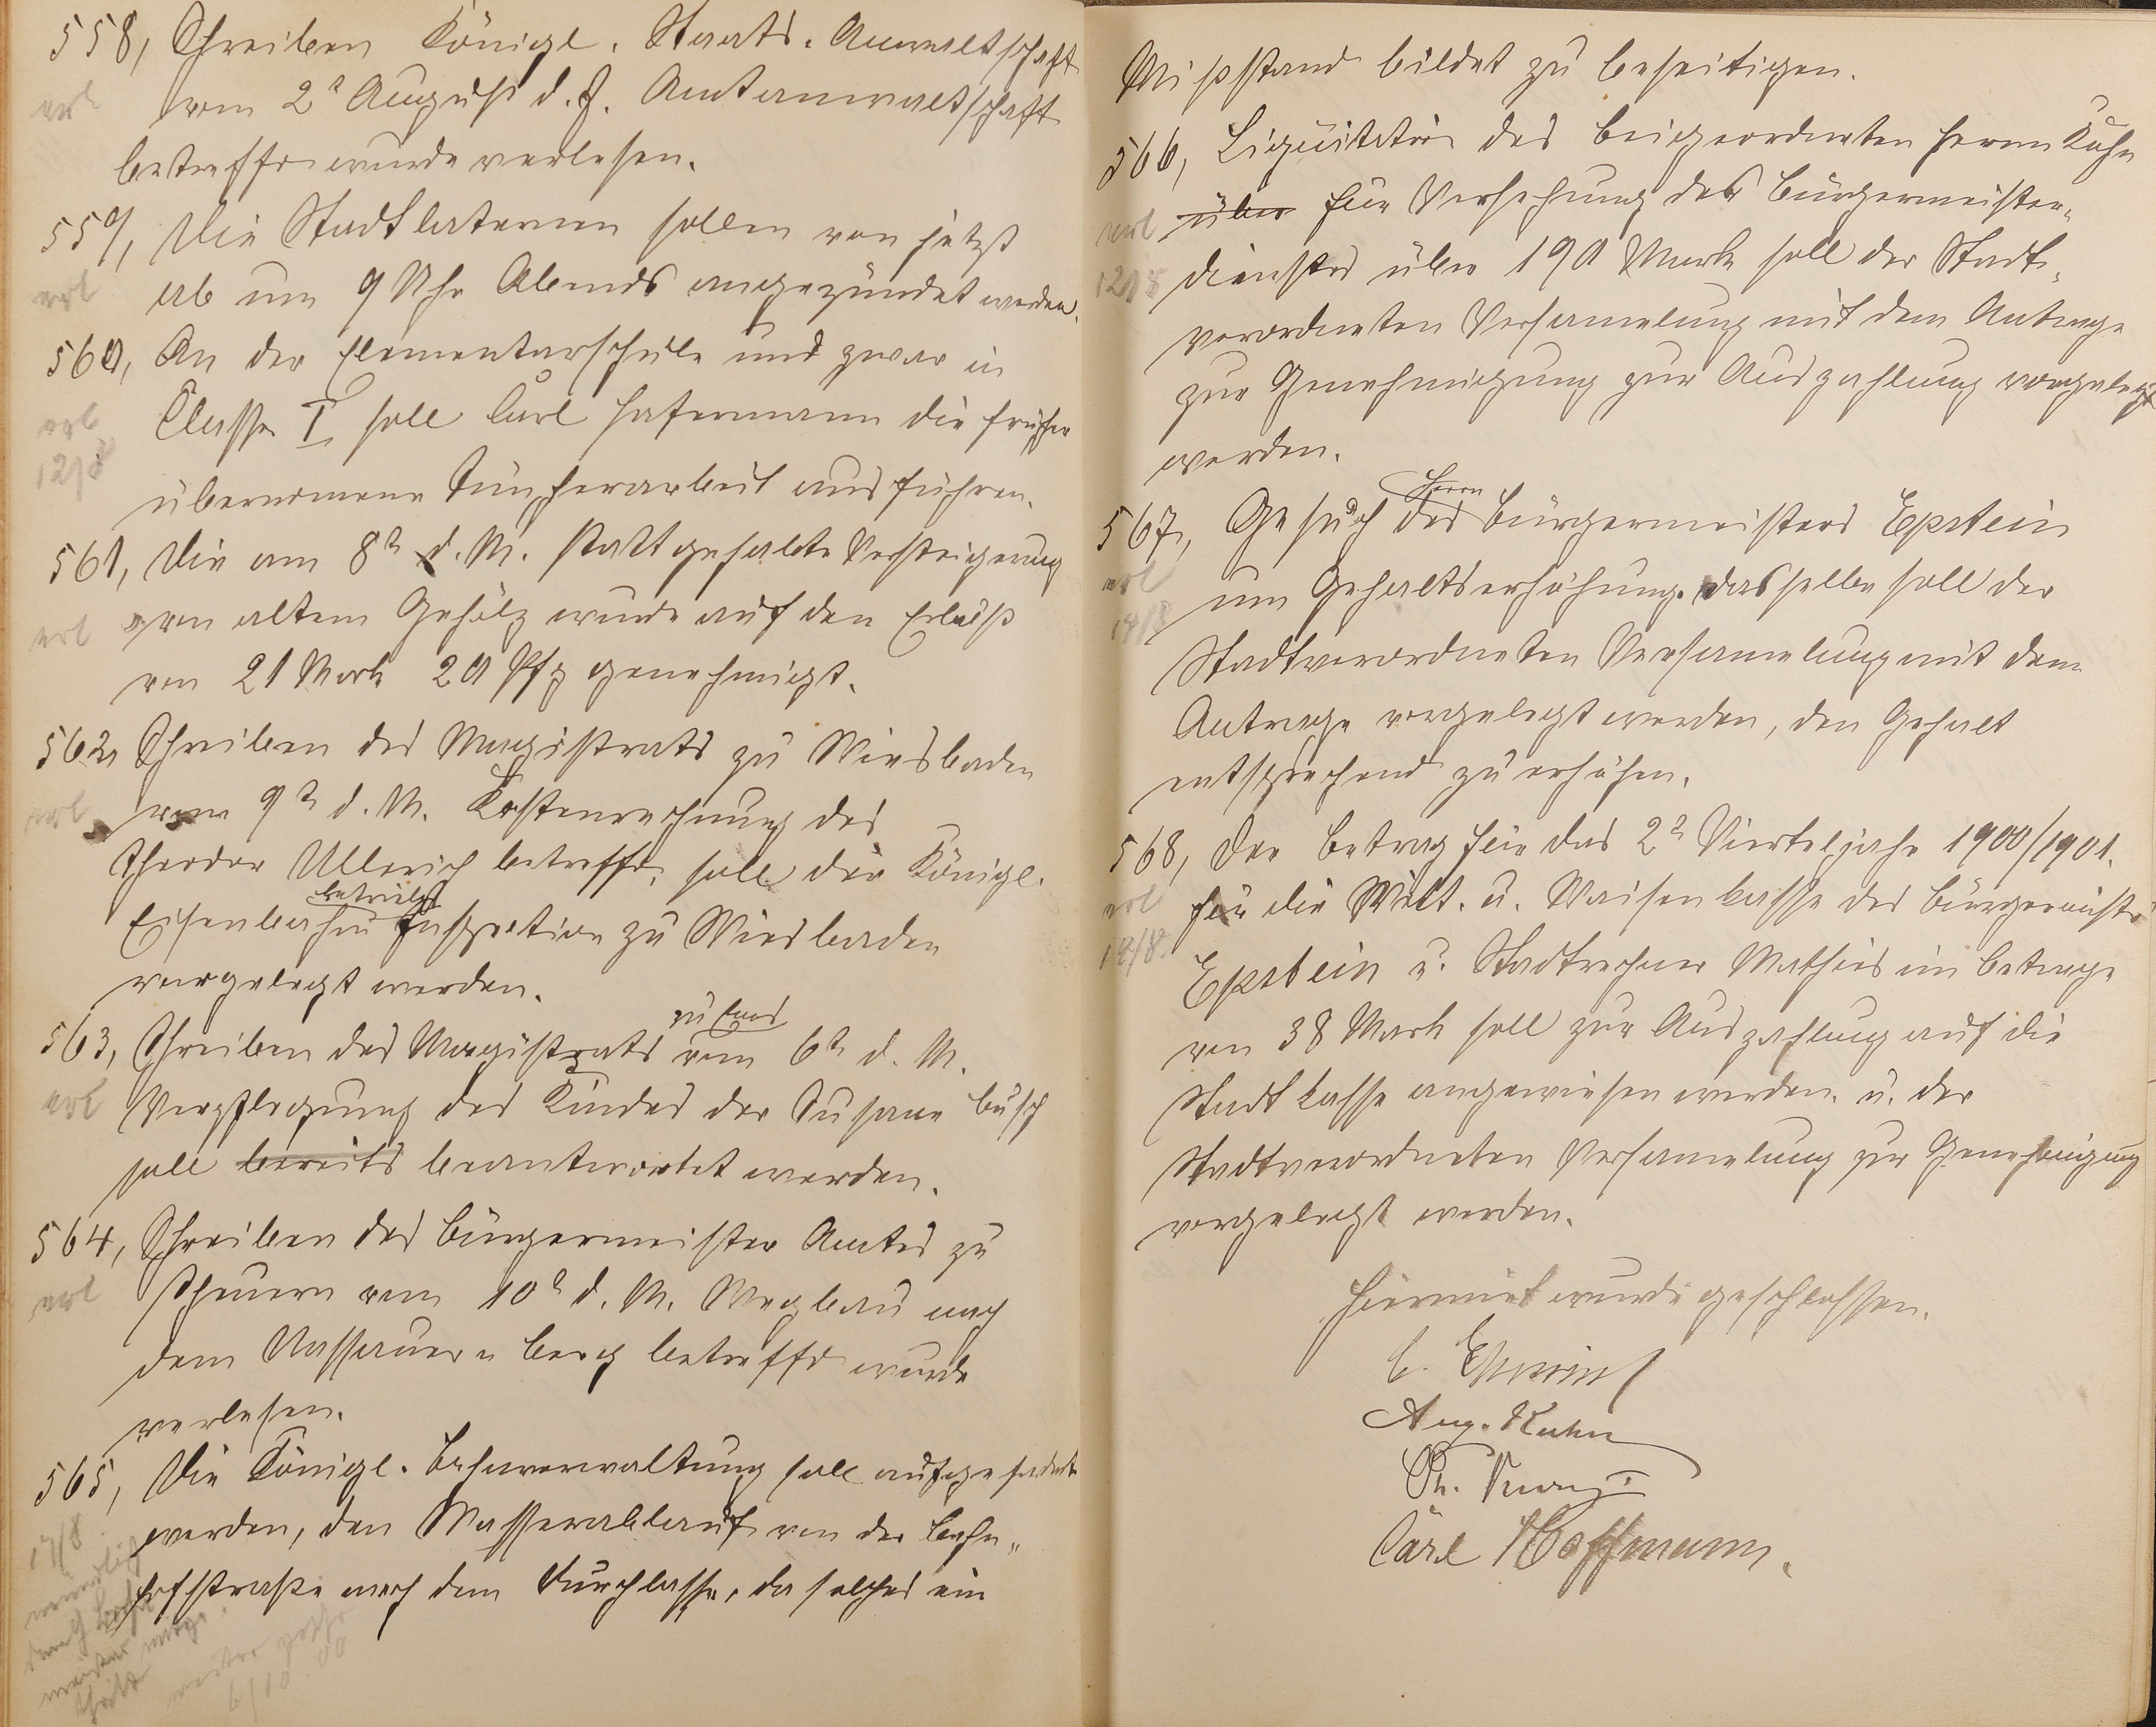 558, Schreiben Königl. Staats-Anwaltschaft
erl
vom 2t August d. J. Amtsanwaltschaft
betreffd wurde verlesen.
559, Die Stadtlaternen sollen von jetzt
erl
ab um 9 Uhr Abends angezündet werden.
560, An der Elementarschule und zwar in
erl
12/8
Classe I soll Carl Hafermann die früher
übernomene Tüncherarbeit ausführen.
561, Die am 8t d. M. stattgehabte Versteigerung
erl
von altem Gehölz wurde auf den Erlöß
von 21 Mark 20 Pfg genehmigt.
562, Schreiben des Magistrats zu Wiesbaden
erl
vom 9t d. M. Kostenrechnung des
Theodor Ullerich betreffd, soll der Königl.
betriebs
Eisenbahn Inspection zu Wiesbaden
vorgelegt werden.
zu Ems
563, Schreiben des Magistrats vom 6t d. M.
erl
Verpflegung des Kindes der Susane Busch
soll bereits beantwortet werden.
564, Schreiben des Bürgermeister Amtes zu
erl
Scheuern vom 10t d. M. Wegbau nach
dem Nassauer-Berg betreffd wurde
verlesen.
565, Die Königl. Bahnverwaltung soll aufgefordert
17/8
werden, den Wasserablauf von der Bahn-
hofstraße nach dem Durchlasse, da solches ein
6/10 00
Mißstand bildet zu beseitigen.
566, Liquitation des Beigeordneten Herrn Kuhn
erl
12/8
über für Versehung des Bürgermeister-
dienstes über 190 Mark soll der Stadt-
verordneten Versamelung mit dem Antrage
zur Genehmigung zur Auszahlung vorgelegt
werden.
Herrn
567, Gesuch des Bürgermeisters Epstein
erl
14/8
um Gehaltserhöhung. dasselbe soll der
Stadtverordneten Versamelung mit dem
Antrage vorgelegt werden, den Gehalt
entsprechend zu erhöhen.
568, Der Betrag für das 2t Vierteljahr 1900/1901.
erl
14/8.
für die Witt. u. Waisenkasse des Bürgermeister
Epstein u. Stadtrechner Mathies im Betrage
von 38 Mark soll zur Auszahlung auf die
Stadtkasse angewiesen werden. u. der
Stadtverordneten Versamelung zur Genehmigung
vorgelegt werden.
Hiermit wurde geschlossen.
Aug. Kuhn
Carl Hoffmann.